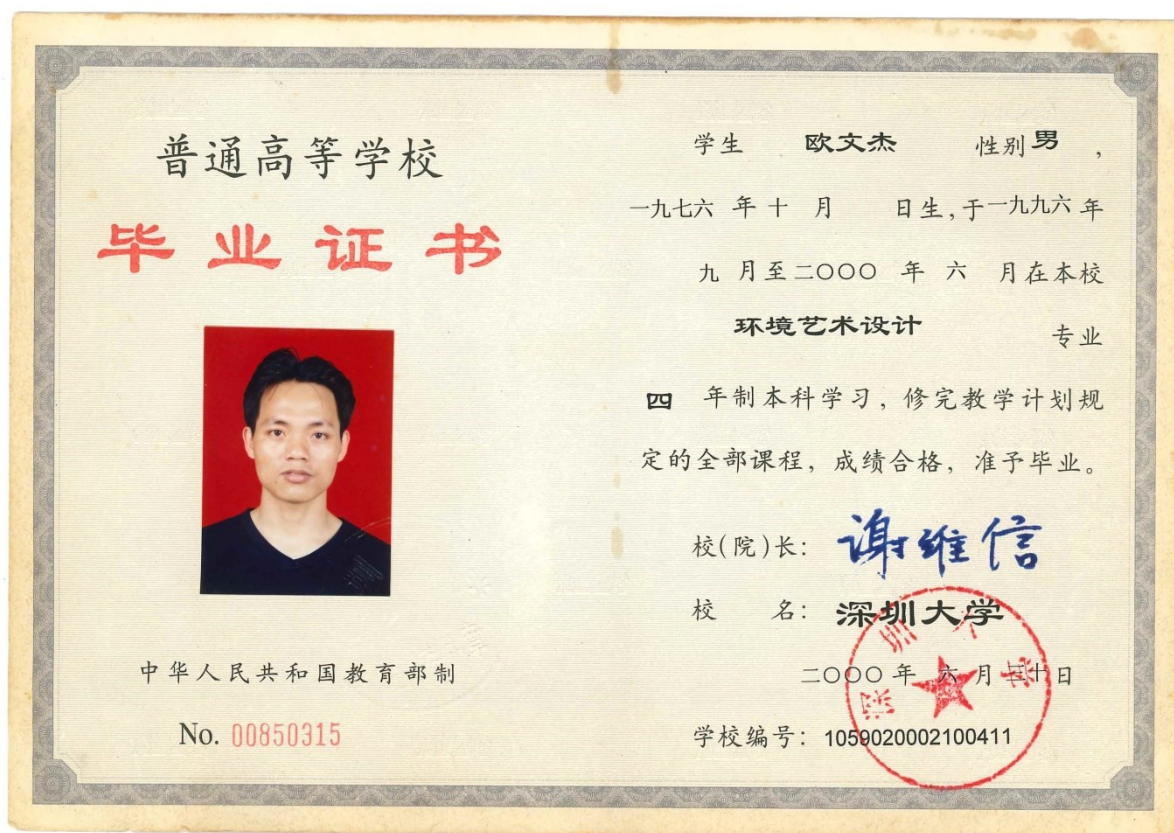 普通高等学校
毕业证书
中华人民共和国教育部制
No. 00850315
学生 欧文杰 性别 男 ,
一九七六 年 十 月 日生,于 一九九六 年
九 月至 二〇〇〇 年 六 月在本校
环境艺术设计 专业
四 年制本科学习,修完教学计划规
定的全部课程,成绩合格,准予毕业。
校(院)长: 谢维信
校 名: 深圳大学
二〇〇〇 年 六 月 三十 日
学校编号: 1059020002100411
深圳大学